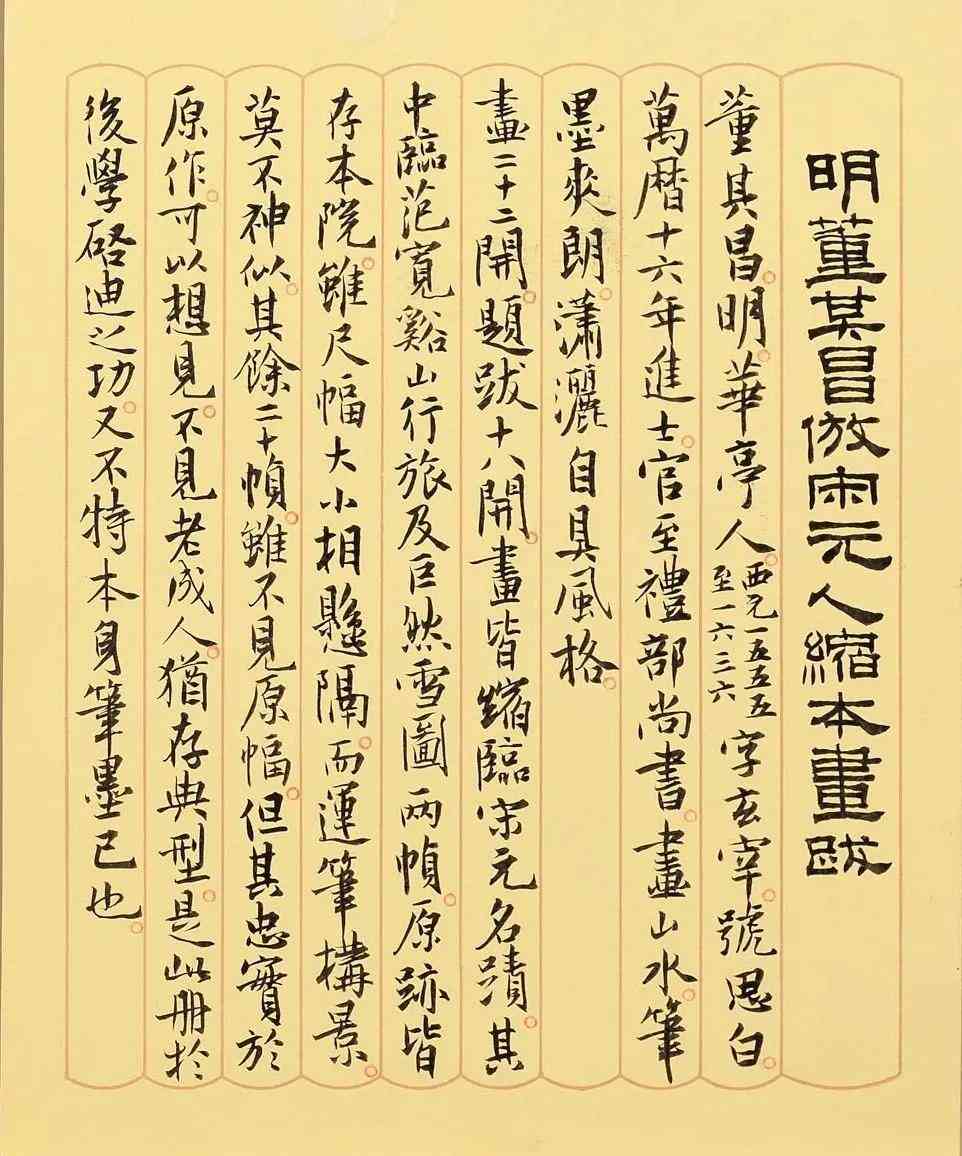 明董其昌倣宋元人縮本畫跋
董其昌。明。華亭人。西元一五五五至一六三六字玄宰。號思白。
萬曆十六年進士。官至禮部尚書。畫山水。筆
墨爽朗。瀟灑自具風格。
畫二十二開。題跋十八開。畫皆縮臨宋元名蹟。其
中臨范寬谿山行旅及巨然雪圖兩幀。原跡皆
存本院。雖尺幅大小相懸隔。而運筆構景。
莫不神似。其餘二十幀。雖不見原幅。但其忠實於
原作。可以想見。不見老成人。猶存典型。是此冊於
後學啓迪之功。又不特本身筆墨已也。